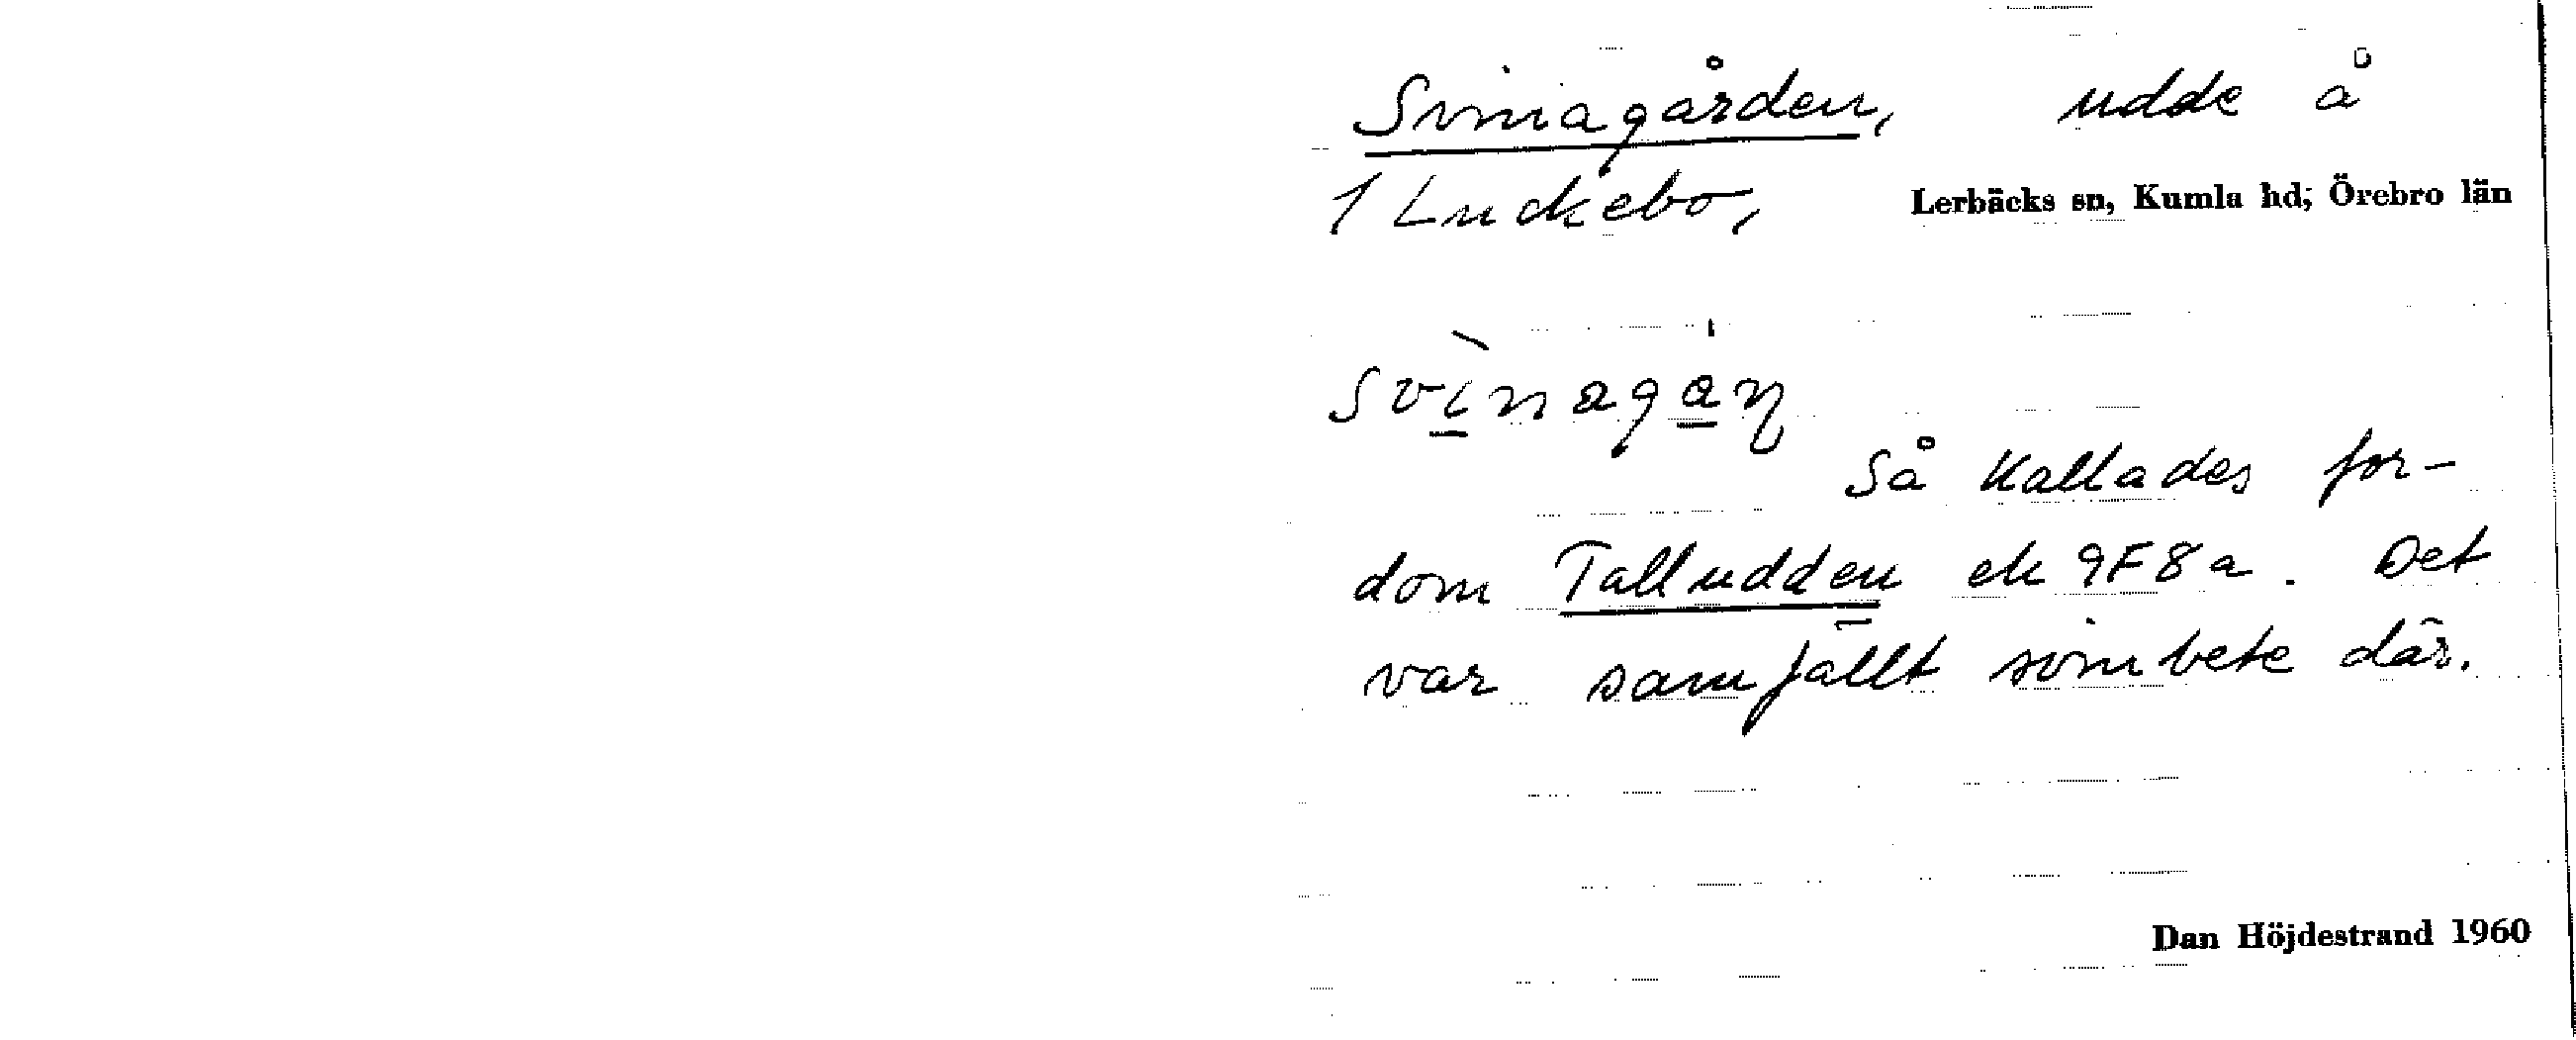 Svinagården, udde å
1 Luckebo, Lerbäcks sn, Kumla hd; Örebro län
svìnagáṇ
Så kallades for-
dom Talludden ek 9F8a. Det
var samfällt svinbete där.
Dan Höjdestrand 1960